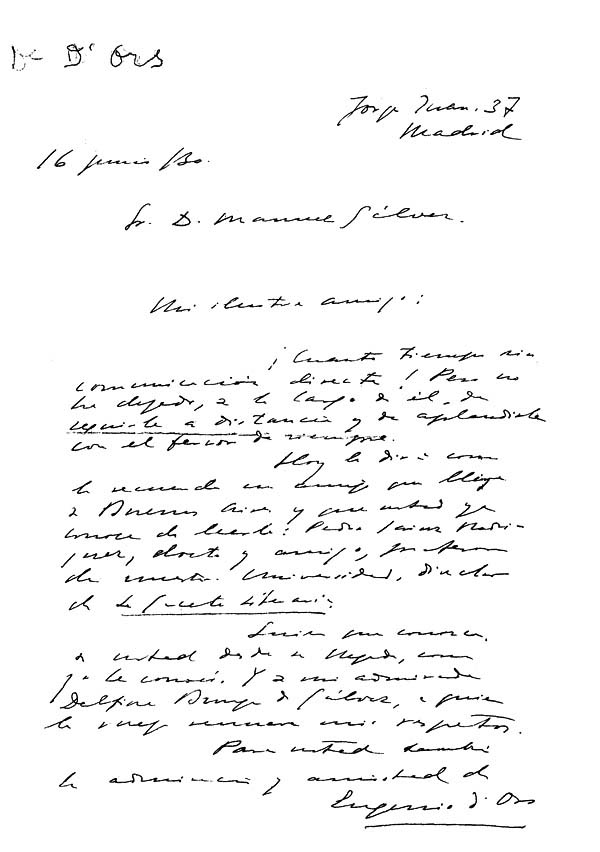 De D'Ors
Jorge Juan. 37
Madrid
16 junio /30.
Sr. D. Manuel Gálvez.
Mi ilustre amigo:
¡Cuánto tiempo sin
comunicación directa! Pero no
he dejado, a lo largo de él, de
seguirle a distancia y de aplaudirle
con el fervor de siempre.
Hoy le dirá como
le recuerdo un amigo que llega
a Buenos Aires y que usted ya
conoce de leerle: Pedro Sainz Rodrí-
guez, docto y amigo, profesor
de nuestra Universidad, director
de La Gaceta Literaria.
que conozca
a usted desde su llegada, como
ya le conocí. Y a mi admirada
Delfina Bunge de Gálvez, a quien
le ruego renueve mis respetos.
Para usted también
la admiración y amistad de
Eugenio d'Ors